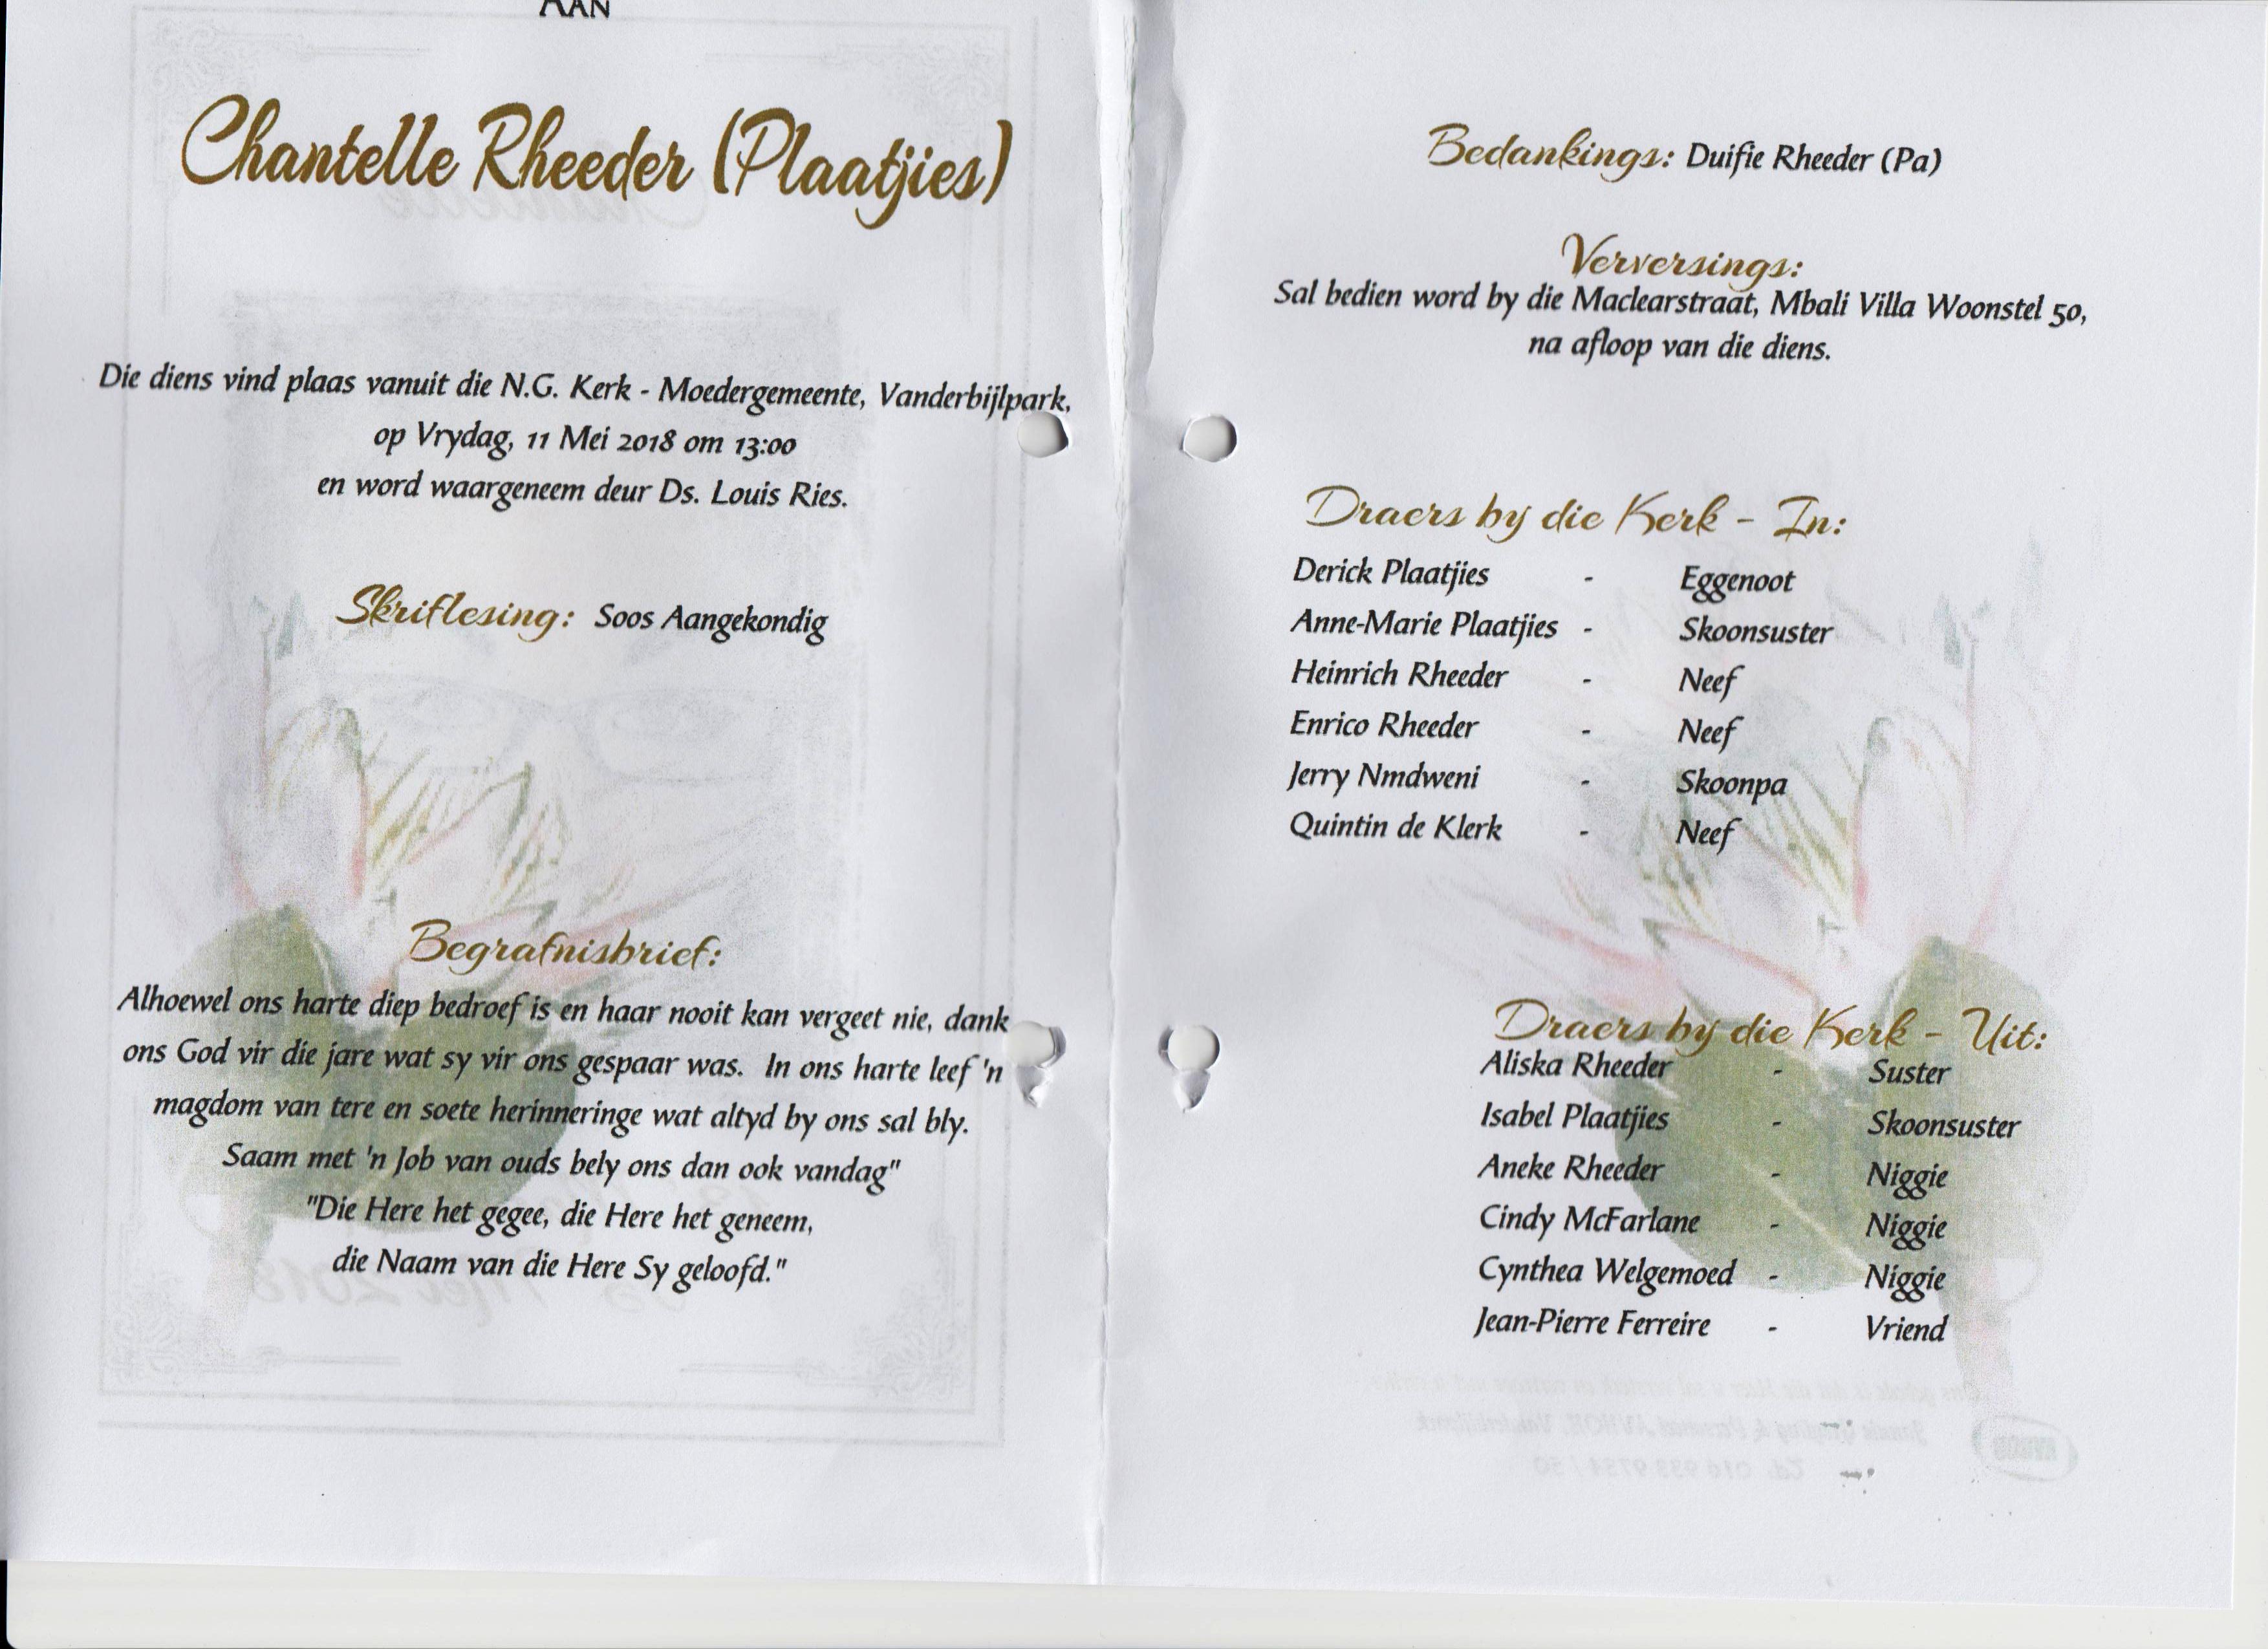 AAN
Chantelle Rheeder (Plaatjies)
Die diens vind plaas vanuit die N.G. Kerk - Moedergemeente, Vanderbijlpark,
op Vrydag, 11 Mei 2018 om 13:00
en word waargeneem deur Ds. Louis Ries.
Skriflesing: Soos Aangekondig
Begrafnisbrief:
Alhoewel ons harte diep bedroef is en haar nooit kan vergeet nie, dank
ons God vir die jare wat sy vir ons gespaar was. In ons harte leef 'n
magdom van tere en soete herinneringe wat altyd by ons sal bly.
Saam met 'n Job van ouds bely ons dan ook vandag"
"Die Here het gegee, die Here het geneem,
die Naam van die Here Sy geloofd."
Bedankings: Duifie Rheeder (Pa)
Verversings:
Sal bedien word by die Maclearstraat, Mbali Villa Woonstel 50,
na afloop van die diens.
Draers by die Kerk - In:
Derick Plaatjies - Eggenoot
Anne-Marie Plaatjies - Skoonsuster
Heinrich Rheeder - Neef
Enrico Rheeder - Neef
Jerry Nmdweni - Skoonpa
Quintin de Klerk - Neef
Draers by die Kerk - Uit:
Aliska Rheeder - Suster
Isabel Plaatjies - Skoonsuster
Aneke Rheeder - Niggie
Cindy McFarlane - Niggie
Cynthea Welgemoed - Niggie
Jean-Pierre Ferreire - Vriend